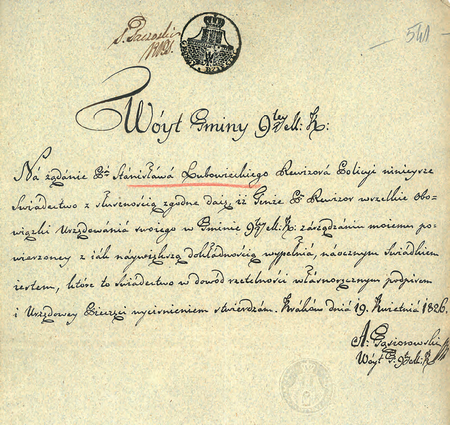 541
Wóyt Gminy 9tey M: K:
Na żądanie Pa Stanisława Lubowieckiego Rewizora Policyi ninieysze
Swiadectwo z słusznością zgodne daię, iż Tenże P. Rewizor wszelkie obo-
wiązki Urzędowania swoiego w Gminie 9tey M: K: zarządzaniu moiemu po-
wierzoney z iak naywiększą dokładnością wypełnia, naocznym świadkiem
iestem, które to świadectwo w dowód rzetelności własnoręcznym podpisem
i Urzędowey Pieczęci wyciśnieniem stwierdzam. Kraków dnia 19. Kwietnia 1826.
A: Gąsiorowski
Wóyt G: 9 M: K: